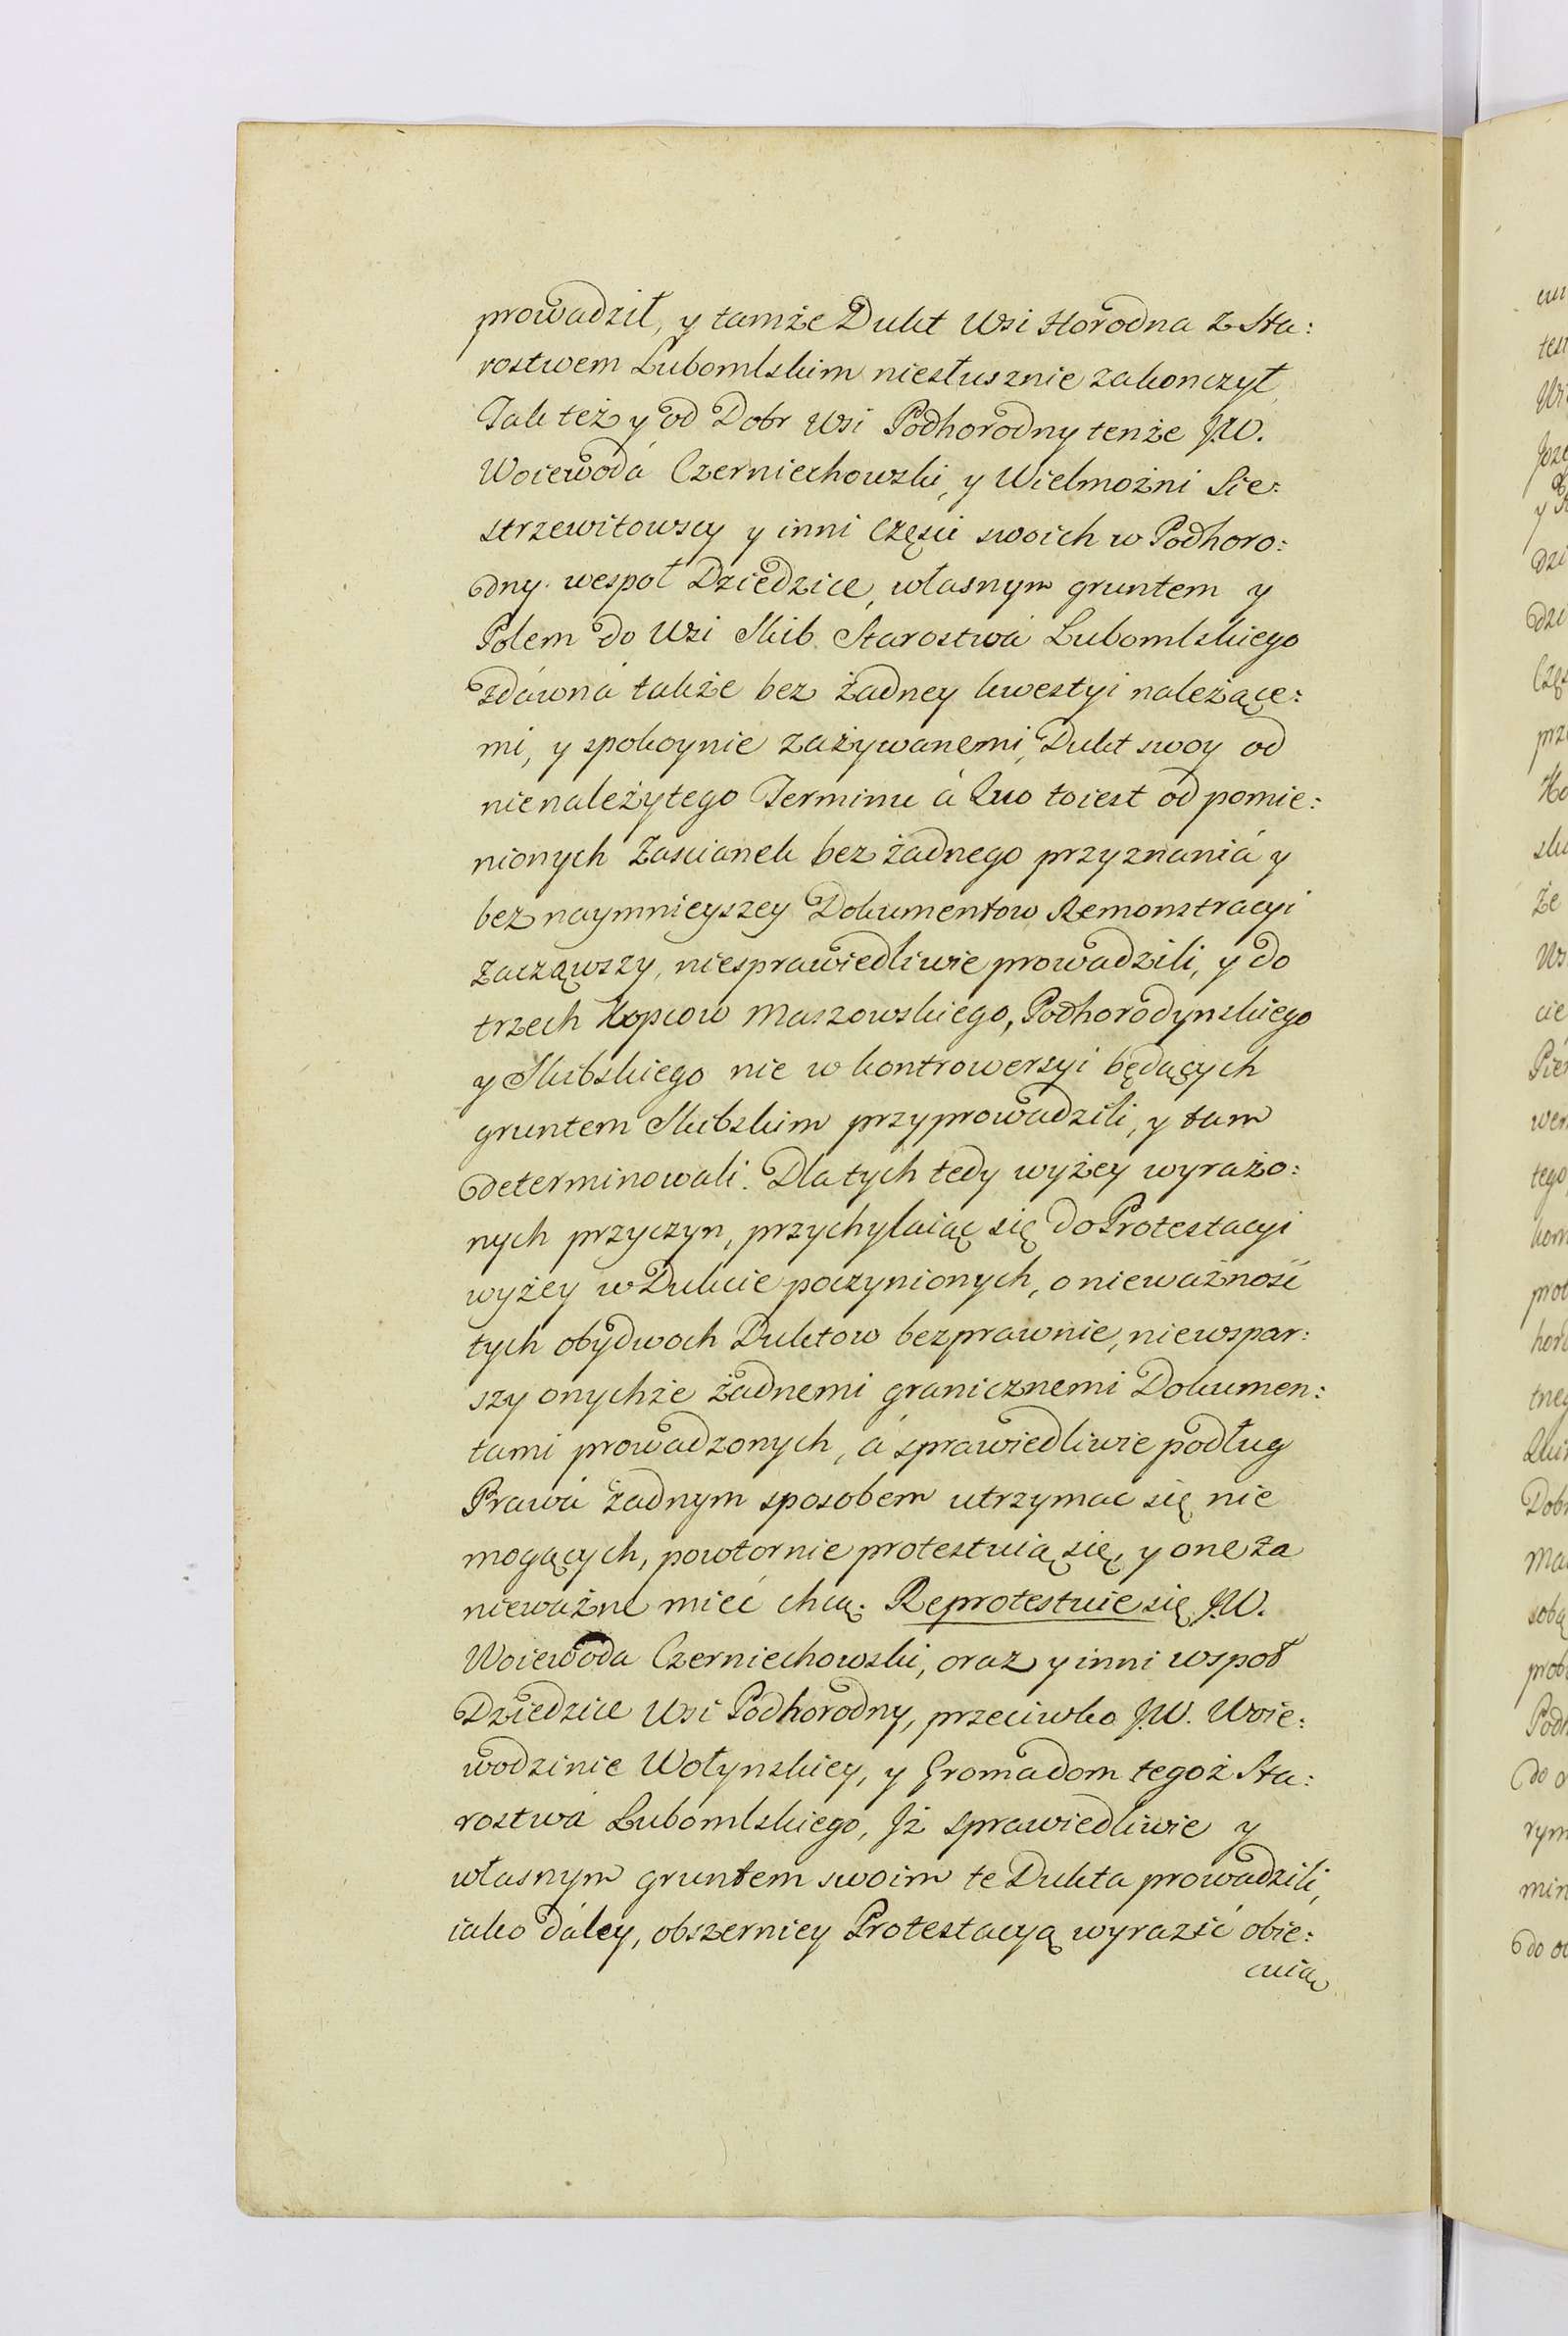 prowadził, y tamże Dukt Wsi Horodna z Sta:
rostwem Lubomlskim niesłusznie zakonczył
Tak też y od Dobr Wsi Podhorodny tenże J.W.
Woiewodá Czerniechowski, y Wielmożni Sie:
strzewitowscy y inni Częsci swoich w Podhoro:
dny wespoł Dziedzice, własnym gruntem y
Polem do Wsi Skib Starostwá Lubomlskiego
zdáwná także bez żadney kwestyi należące:
mi, y spokoynie zażywanemi, Dukt swoy od
nienależytego Terminu á Quo toiest od pomie:
nionych Zascianek bez żadnego przyznaniá y
bez naymnieyszey Dokumentow Remonstracyi
zacząwszy, niesprawiedliwie prowadzili, y do
trzech Kopcow Maszowskiego, Podhorodynskiego
y Skibskiego nie w kontrowersyi będących
gruntem Skibskim przyprowadzili, y tam
determinowali. Dla tych tedy wyżey wyrażo:
nych przyczyn, przychylaiąc się do Protestacyi
wyżey w Dukcie poczynionych, o nieważność
tych obydwoch Duktow bezprawnie, niewspar:
szy onychże żadnemi granicznemi Dokumen:
tami prowadzonych, á sprawiedliwie podług
Prawá żadnym sposobem utrzymac się nie
mogących, powtornie protestuią się, y one za
nieważne mieć chcą. Reprotestuie się J.W.
Woiewoda Czerniechowski, oraz y inni wspoł
Dziedzice Wsi Podhorodny, przeciwko J.W. Woie:
wodzinie Wołynskiey, y Gromadom tegoż Sta:
rostwá Lubomlskiego, Jż sprawiedliwie y
własnym gruntem swoim te Dukta prowadzili,
iako dáley, obszerniey Protestacyą wyrazić obie:
cuią